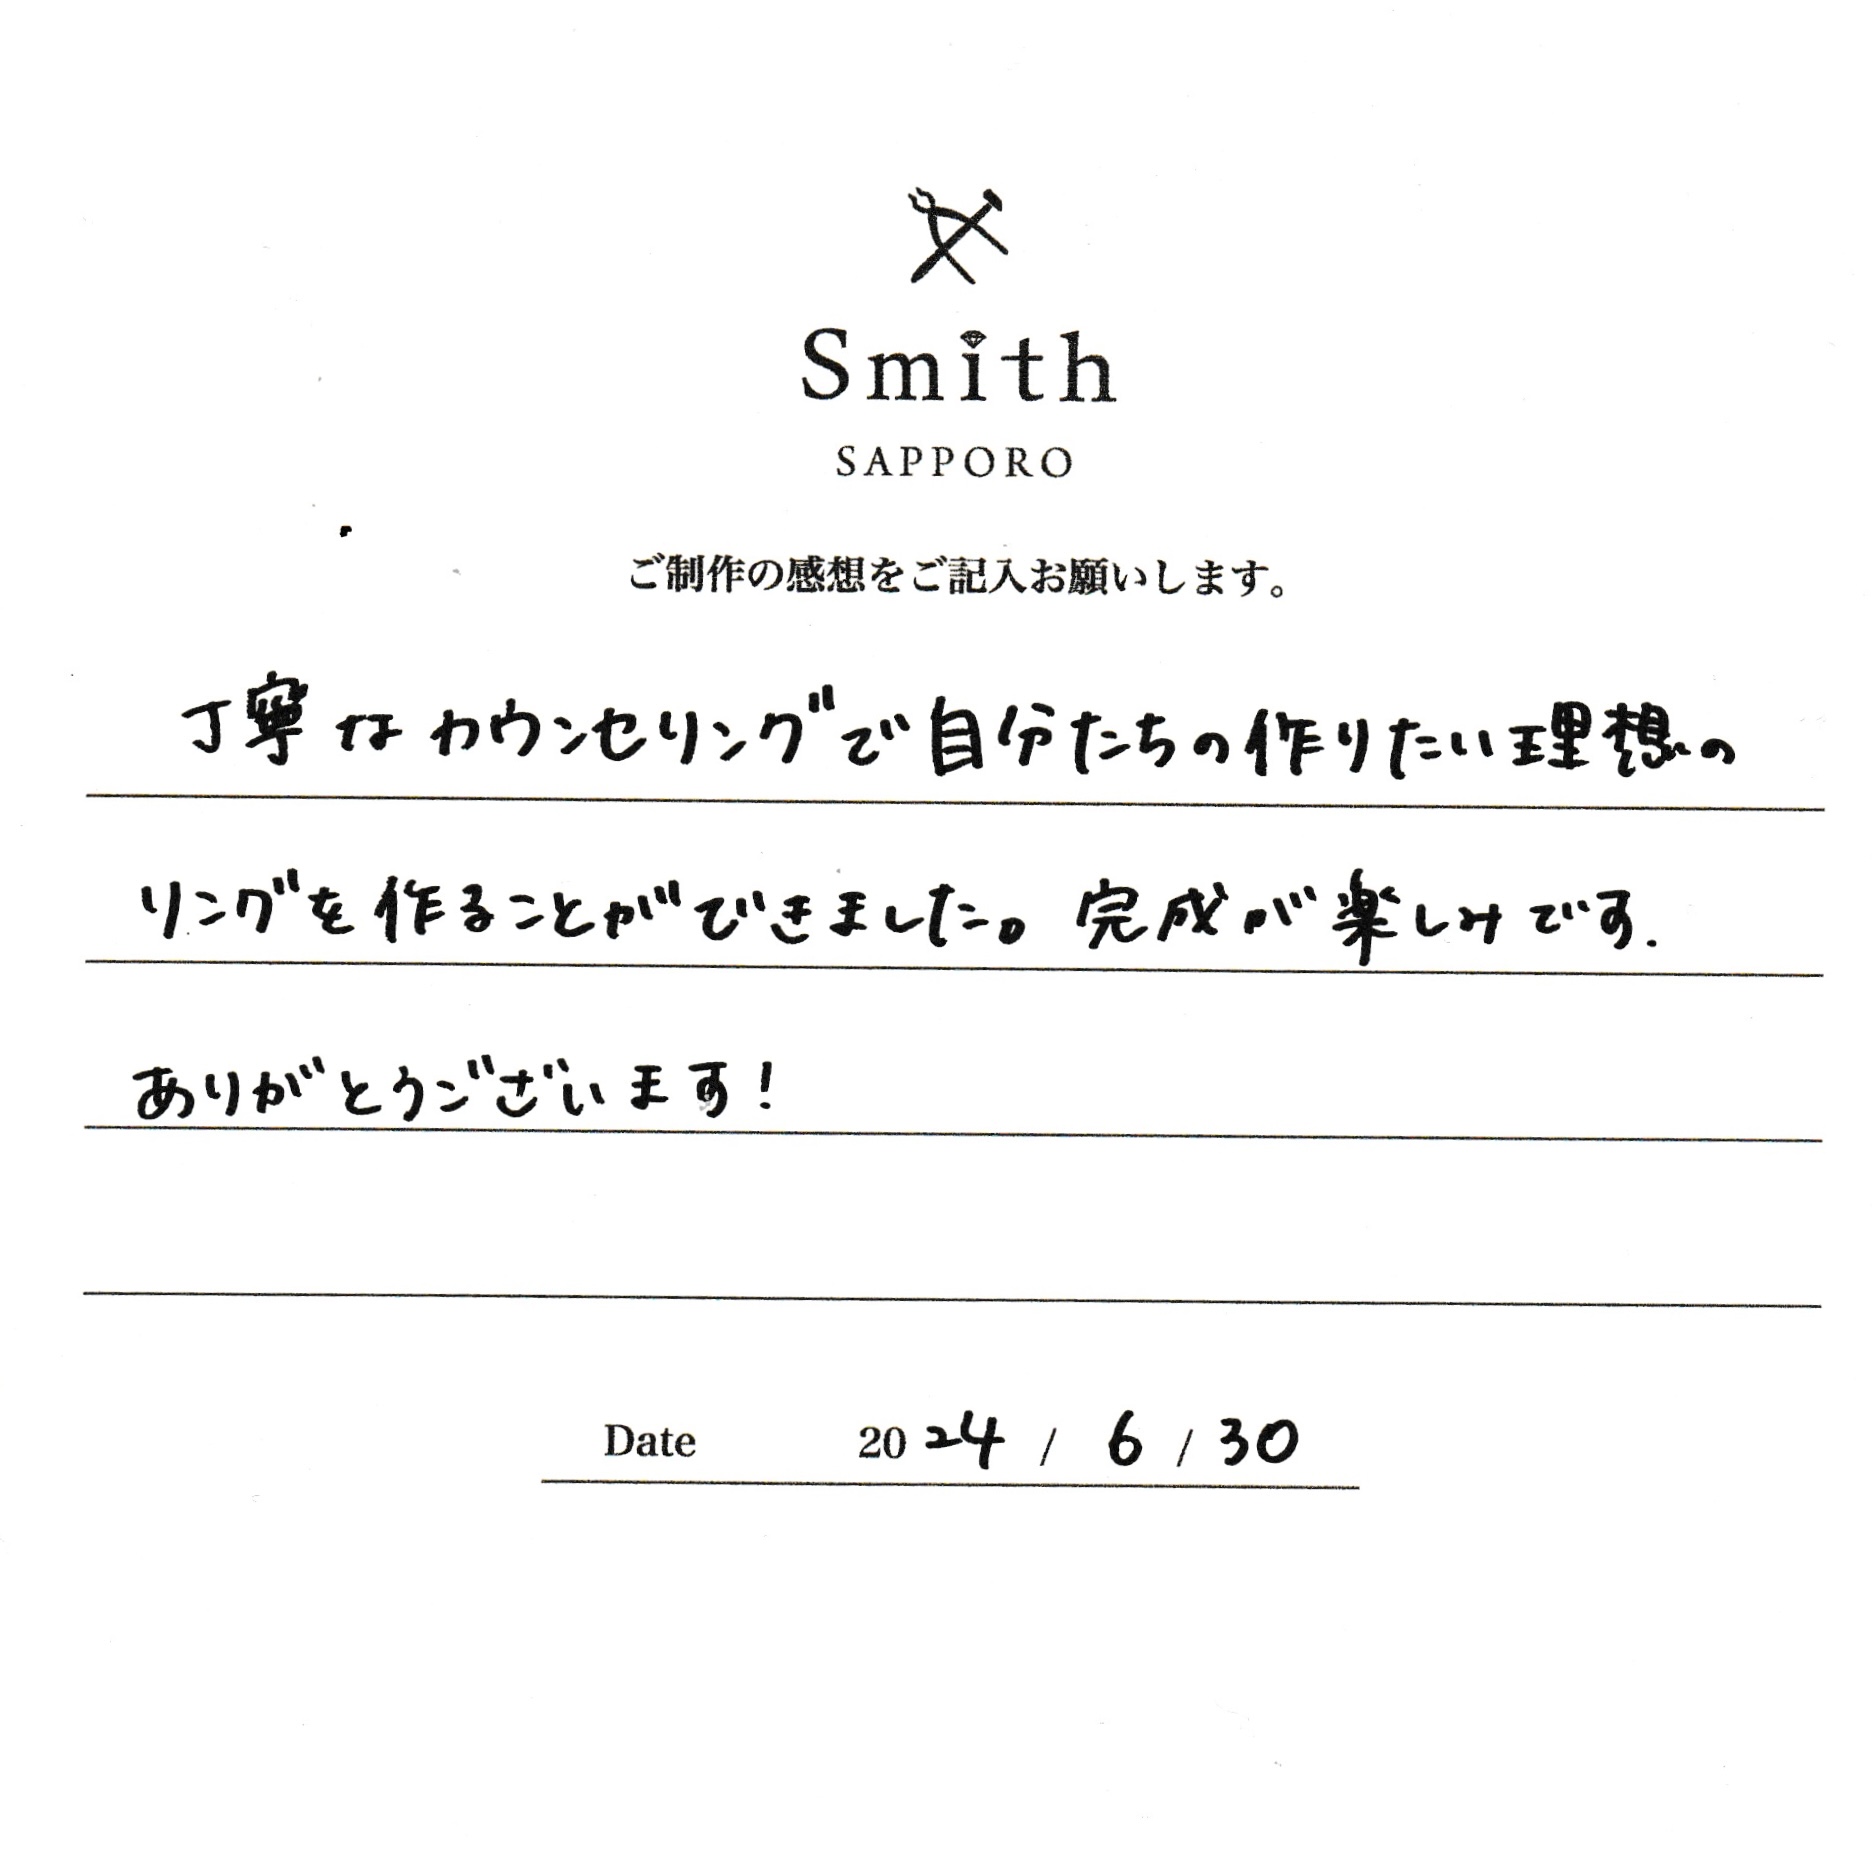 Smith
SAPPORO
ご制作の感想をご記入お願いします。
丁寧なカウンセリングで自分たちの作りたい理想の
リングを作ることができました。完成が楽しみです.
ありがとうございます!
Date 2024 / 6 / 30